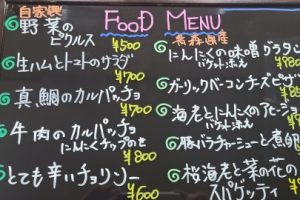 FOOD MENU
自家製
野菜の
ピクルス
¥500
生ハムとトマトのサラダ
¥700
真鯛のカルパッチョ
¥700
牛肉のカルパッチョ
にんにくチップのせ
¥800
とても辛いチョリソー
¥600
青森県産
にんにくの味噌グラタン
バケット添え
ガーリックベーコンチーズピザ
海老とにんにくの
バケット添え
豚バラチャーシューと煮卵
桜海老と菜の花の
スパゲッティ